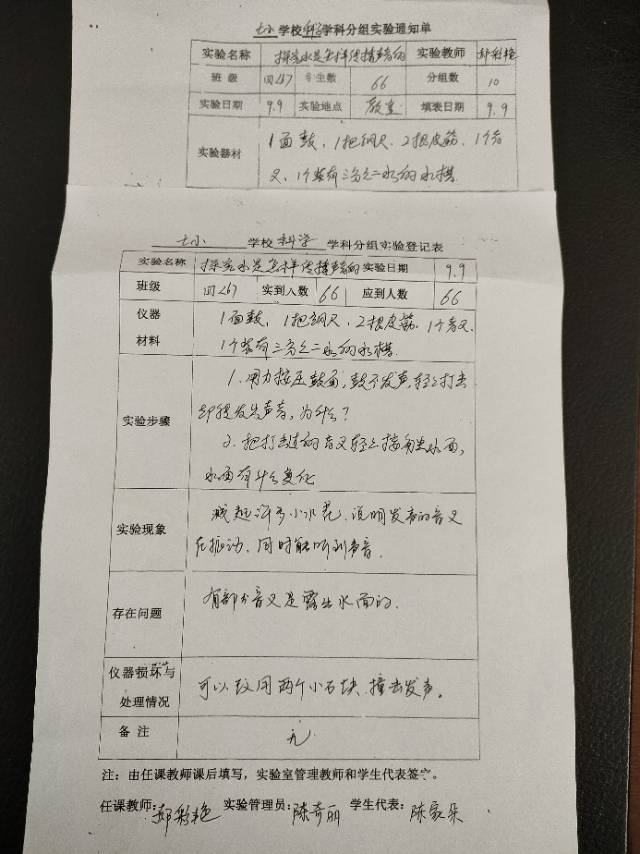 七小学校科学学科分组实验通知单
实验名称 探究水是怎样传播声音的 实验教师 郝彩艳
班级 四 学生数 66 分组数 10
实验日期 9.9 实验地点 教室 填表日期 9.9
实验器材 1面鼓，1把钢尺、2根皮筋，1个音
叉、1个装有三分之二水的水槽.
七小 学校 科学 学科分组实验登记表
实验名称 探究水是怎样传播声音的 实验日期 9.9
班级 四 实到人数 66 应到人数 66
仪器 1面鼓，1把钢尺、2根皮筋、1个音叉
材料 1个装有三分之二水的水槽.
1. 用力按压鼓面，鼓不发声，轻轻打击
实验步骤 却能发出声音，为什么？
2. 把打击过的音叉轻轻接触水面，
水面有什么变化
溅起许多小水花、说明发声的音叉
实验现象
在振动、同时能听到声音.
有部分音叉是露出水面的.
存在问题
仪器损坏与
处理情况 可以改用两个小石块、撞击发声。
备注 无
注：由任课教师课后填写，实验室管理教师和学生代表签字。
任课教师：郝彩艳 实验管理员：陈奇丽 学生代表：陈家朵